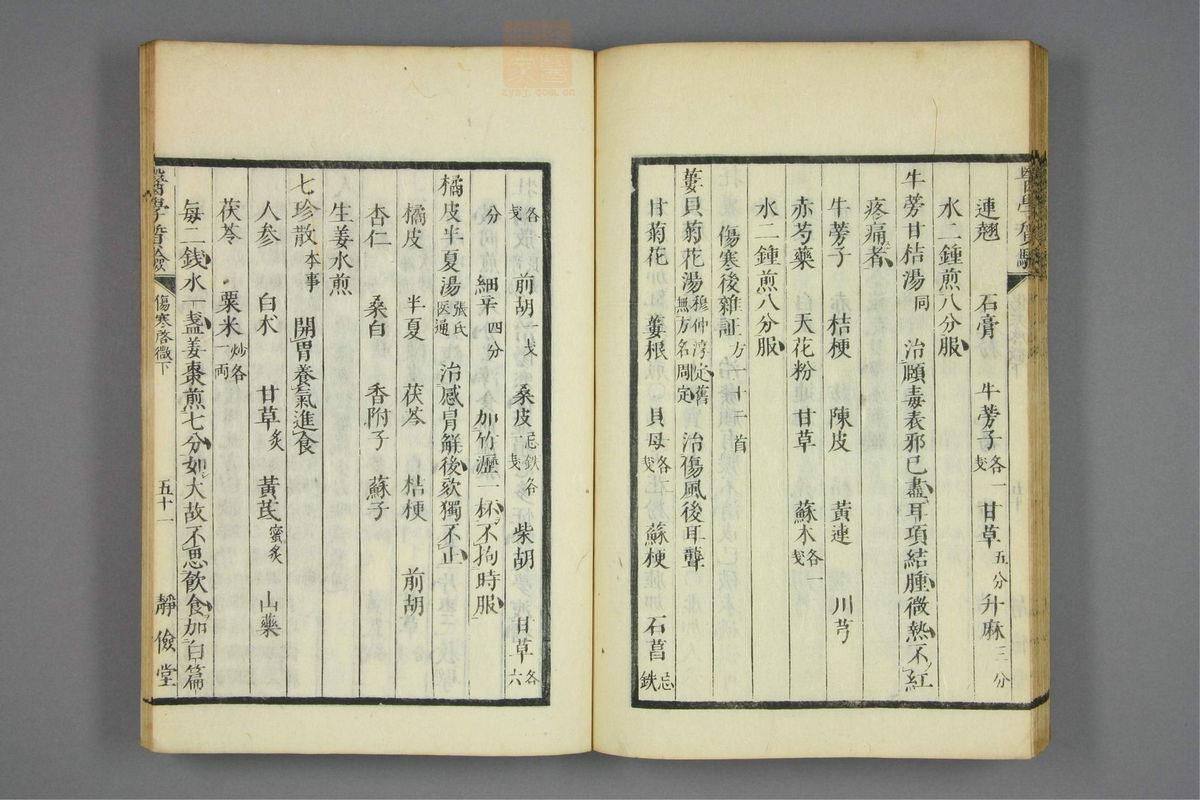 連翹 石膏 牛蒡子各一戔 甘草五分 升麻三分
水二鍾煎八分服
牛蒡甘桔湯同 治頤毒表邪已盡耳項結腫微熱不紅
疼痛者
牛蒡子 桔梗 陳皮 黃連 川芎
赤芍藥 天花粉 甘草 蘇木各一戔
水二鍾煎八分服
傷寒後雜証方一十二首
蔞貝菊花湯穆仲淳定舊無方名周定 治傷風後耳聾
甘菊花 蔞根 貝母各二戔 蘇梗 石菖忌鉄
各戔 前胡一戔 桑皮忌鉄各戔 柴胡 甘草各六
分 細辛四分 加竹瀝一杯不拘時服
橘皮半夏湯張氏医通 治感冒解後欬獨不止
橘皮 半夏 茯苓 桔梗 前胡
杏仁 桑白 香附子 蘇子
生姜水煎
七珍散本事 開胃養氣進食
人参 白朮 甘草炙 黃芪蜜炙 山藥
茯苓 粟米炒各一両
每二錢水一盞姜棗煎七分如大故不思飲食加白篇
傷寒啓微下
五十一
靜儉堂